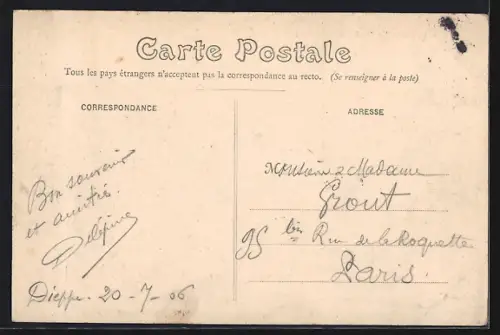 Carte Postale
Tous les pays étrangers n'acceptent pas la correspondance au recto. (Se renseigner à la poste)
CORRESPONDANCE
ADRESSE
Bon souvenir
et amitié.
Delépine
Dieppe. 20-7-06
Monsieur & Madame
Grout
95 bis Rue de la Roquette
Paris.